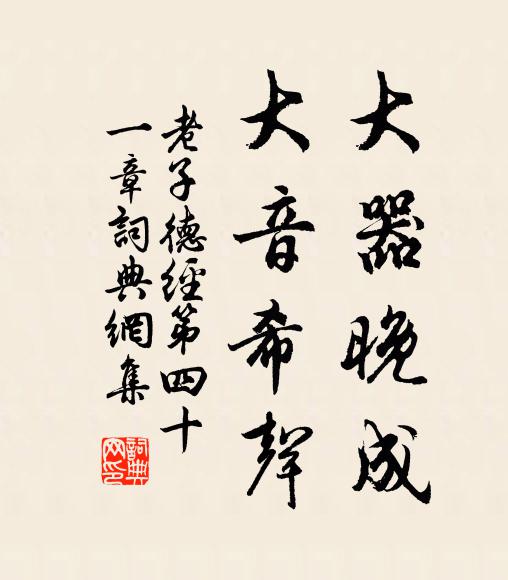 大器晚成
大音希聲
老子德經第四十
一章詞典網集
詞典
网印